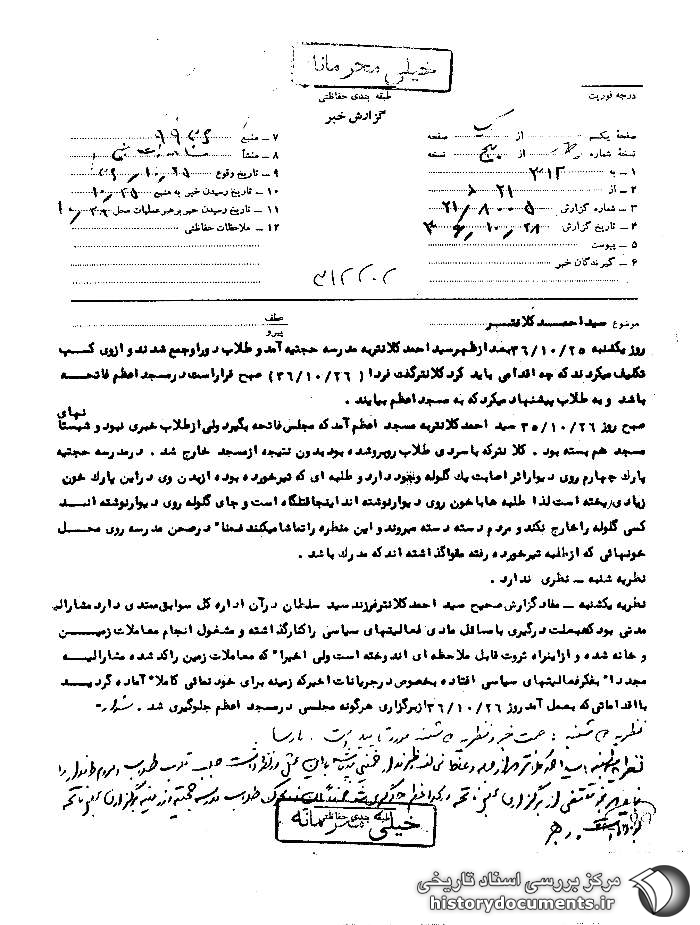 خیلی محرمانه
درجه فوریت
طبقه بندی حفاظتی
گزارش خبر
صفحه یکم از یک صفحه
نسخه شماره از پنج نسخه
۱ – به ۳۱۲
۲ – از ۲۱
۳ – شماره گزارش ۲۱/۸۰۰۵
۴ – تاریخ گزارش ۳۶/۱۰/۲۸
۵ – پیوست
۶ – گیرندگان خبر
۷ – منبع
۸ – منشأ
۹ – تاریخ وقوع ۳۶/۱۰/۲۵
۱۰ – تاریخ رسیدن خبر به منبع ۱۰/۲۵
۱۱ – تاریخ رسیدن خبر برهبر عملیات محل
۱۲ – ملاحظات حفاظتی
موضوع سید احمد کلانتر
عطف
پیرو
روز یکشنبه ۳۶/۱۰/۲۵ بعد از ظهر سید احمد کلانتر به مدرسه حجتیه آمد و طلاب دور او جمع شدند و از وی کسب
تکلیف میکردند که چه اقدامی باید کرد کلانتر گفت فردا (۳۶/۱۰/۲۶) صبح قرار است در مسجد اعظم فاتحه
باشد و به طلاب پیشنهاد میکرد که به مسجد اعظم بیایند .
صبح روز ۳۵/۱۰/۲۶ سید احمد کلانتر به مسجد اعظم آمد که مجلس فاتحه بگیرد ولی از طلاب خبری نبود و شبستانهای
مسجد هم بسته بود . کلانتر که با سردی طلاب روبرو شده بود بدون نتیجه از مسجد خارج شد . در مدرسه حجتیه
پارک چهارم روی دیوار اثر اصابت یک گلوله وجود دارد و طلبه ای که تیر خورده بوده از بدن وی در این پارک خون
زیادی ریخته است لذا طلبه ها با خون روی دیوار نوشته اند اینجا قتلگاه است و جای گلوله روی دیوار نوشته انـد
کسی گلوله را خارج نکند و مردم دسته دسته میروند و این منظره را تماشا میکنند ضمنا" در صحن مدرسه روی محـل
خونهائی که از طلبه تیر خورده رفته مقوا گذاشته اند که مدرک باشد .
نظریه شنبه – نظری ندارد .
نظریه یکشنبه – مفاد گزارش صحیح سید احمد کلانتر فرزند سید سلطان در آن اداره کل سوابق ممتدی دارد مشارالیه
مدتی بود که بعلت درگیری با مسائل مادی فعالیتهای سیاسی را کنار گذاشته و مشغول انجام معاملات زمیـن
و خانه شده و از اینراه ثروت قابل ملاحظه ای اندوخته است ولی اخیرا" که معاملات زمین راکد شده مشارالیـه
مجددا" بفکر فعالیتهای سیاسی افتاده بخصوص در جریانات اخیر که زمینه برای خود نمائی کاملا" آماده گردیـد
با اقداماتی که بعمل آمد روز ۳۶/۱۰/۲۶ از برگزاری هرگونه مجلسی در مسجد اعظم جلوگیری شد .
نظریه شنبه : صحت خبر و نظریه شنبه مورد تایید است . پارسا
طبقه بندی حفاظتی
خیلی محرمانه
مرکز بررسی اسناد تاریخی
historydocuments.ir